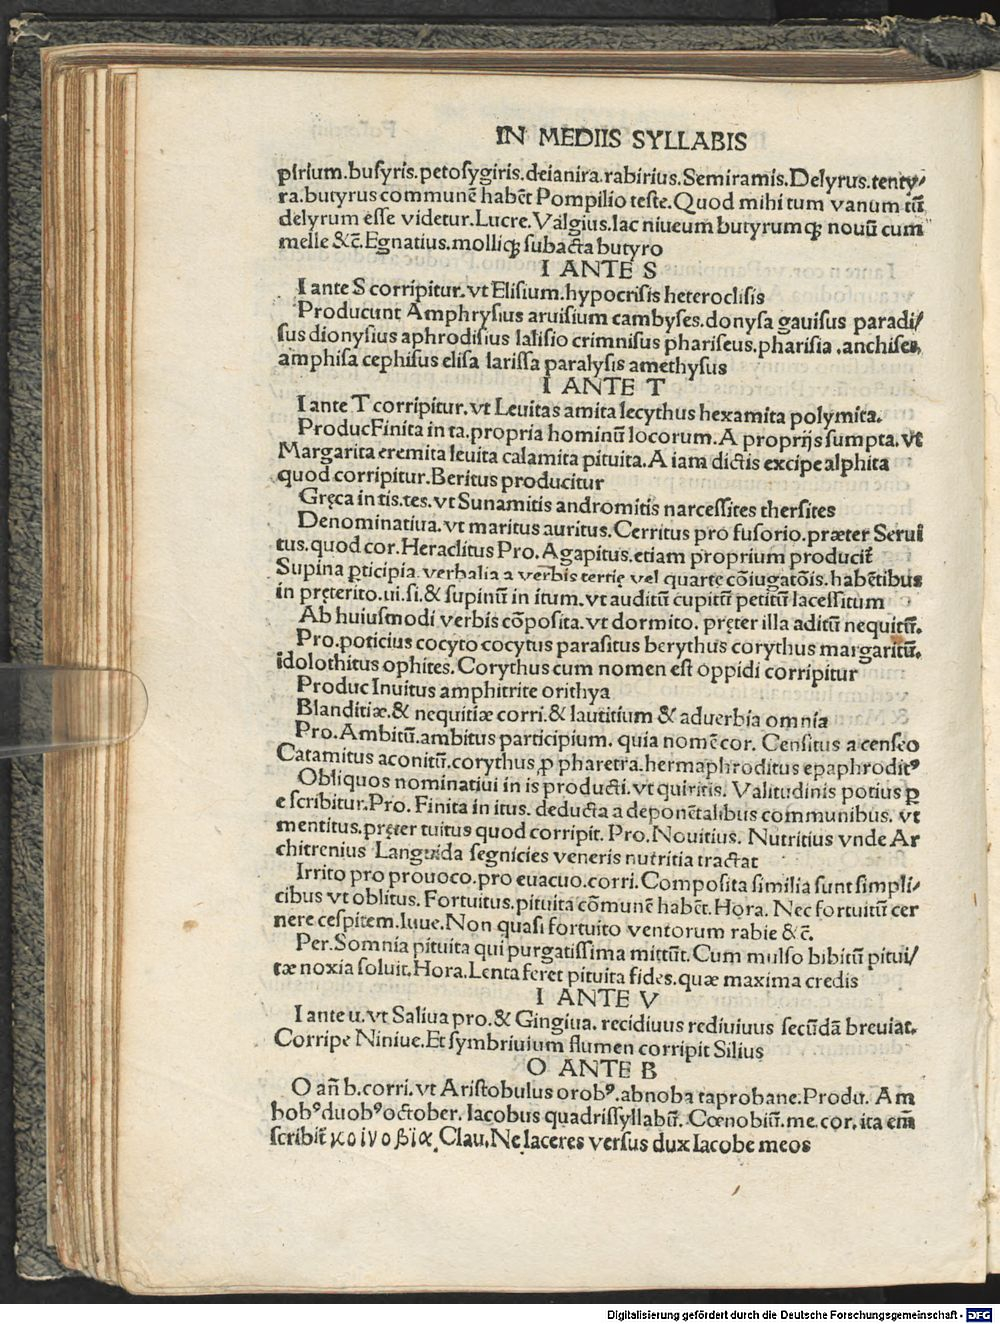 IN MEDIIS SYLLABIS
pirium.busyris.petosygiris.deianira.rabirius.Semiramis.Delyrus.tenty/
ra.butyrus communē habēt Pompilio teste.Quod mihi tum vanum tū
delyrum esse videtur.Lucre.Valgius.lac niueum butyrumqꝫ nouū cum
melle &c̄.Egnatius.molliqꝫ subacta butyro
I ANTE S
I ante S corripitur.vt Elisium.hypocrisis heteroclisis
Producunt Amphrysius aruisium cambyses.donysa gauisus paradi/
sus dionysius aphrodisius lalisio crimnisus phariseus.pharisia.anchises,
amphisa cephisus elisa larissa paralysis amethysus
I ANTE T
I ante T corripitur.vt Leuitas amita lecythus hexamita polymita.
Produc Finita in ta.propria hominū locorum.A proprijs sumpta.vt
Margarita eremita leuita calamita pituita.A iam dictis excipe alphita
quod corripitur.Beritus producitur
Gręca in tis.tes.vt Sunamitis andromitis narcessites thersites
Denominatiua.vt maritus auritus.Cerritus pro fusorio.præter Serui
tus.quod cor.Heraclitus Pro.Agapitus.etiam proprium producit̄
Supina ꝑticipia.verbalia a verbis tertię vel quarte cōiugatōis.habētibus
in pręterito.ui.si.& supinū in itum.vt auditū cupitū petitū lacessitum
Ab huiusmodi verbis cōposita.vt dormito.pręter illa aditū nequitū.
Pro.poticius cocyto cocytus parasitus berythus corythus margaritū.
idolothitus ophites.Corythus cum nomen est oppidi corripitur
Produc Inuitus amphitrite orithya
Blanditiæ.& nequitiæ corri.& lautitium & aduerbia omnia
Pro.Ambitū.ambitus participium.quia nomē cor. Censitus a censeo
Catamitus aconitū.corythus ꝓ pharetra.hermaphroditus epaphroditꝰ
Obliquos nominatiui in is producti.vt quiritis. Valitudinis potius ꝑ
e scribitur.Pro. Finita in itus. deducta a deponētalibus communibus. vt
mentitus.pręter tuitus quod corripit. Pro.Nouitius. Nutritius vnde Ar
chitrenius Languida segnicies veneris nutritia tractat
Irrito pro prouoco.pro euacuo.corri.Composita similia sunt simpli/
cibus vt oblitus. Fortuitus.pituita cōmunē habēt.Hora. Nec fortuitū cer
nere cespitem.Iuue.Non quasi fortuito ventorum rabie &c̄.
Per.Somnia pituita qui purgatissima mittūt.Cum mulso bibitū pitui/
tæ noxia soluit.Hora.Lenta feret pituita fides.quæ maxima credis
I ANTE V
I ante u.vt Saliua pro.& Gingiua. recidiuus rediuiuus secūdā breuiat.
Corripe Niniue.Et symbriuium flumen corripit Silius
O ANTE B
O an̄ b.corri.vt Aristobulus orobꝰ.abnoba taprobane.Produ. Am
bobꝰ duobꝰ october. Iacobus quadrissyllabū. Cœnobiū.me.cor.ita em̄
scribit̄ κοινοβια. Clau.Ne laceres versus dux Iacobe meos
Digitalisierung gefördert durch die Deutsche Forschungsgemeinschaft - DFG